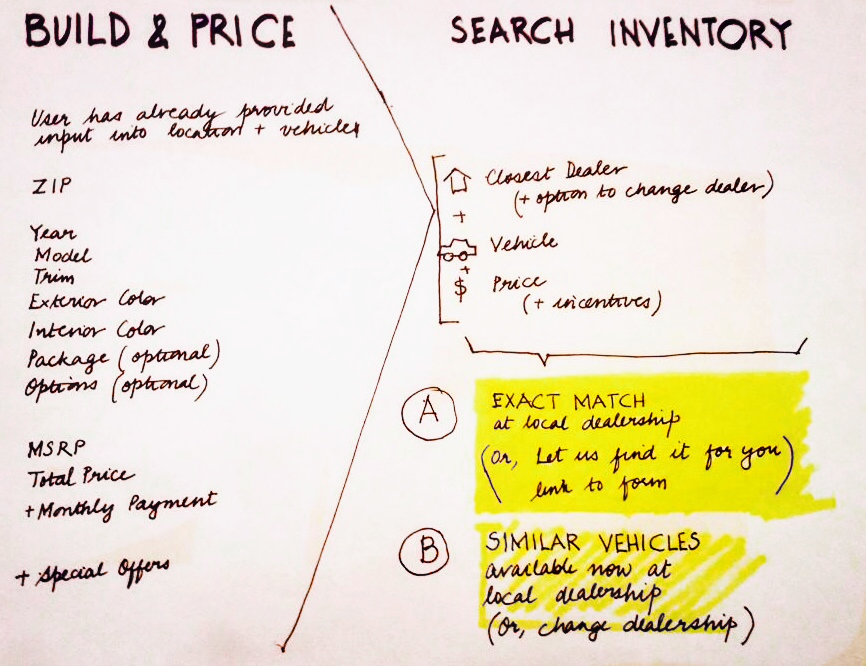 BUILD & PRICE
User has already provided
input into location + vehicle
ZIP
Year
Model
Trim
Exterior Color
Interior Color
Package (optional)
Options (optional)
MSRP
Total Price
+ Monthly Payment
+ Special Offers
SEARCH INVENTORY
Closest Dealer
(+ option to change dealer)
+
Vehicle
+
$ Price
(+ incentives)
A
EXACT MATCH
at local dealership
(Or, Let us find it for you)
link to form
B
SIMILAR VEHICLES
available now at
local dealership
(Or, change dealership)